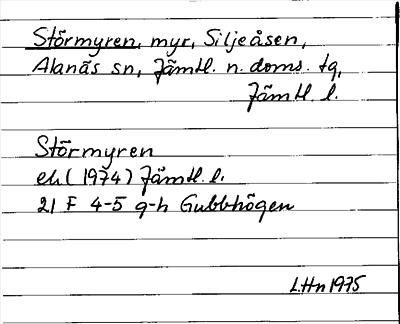 Störmyren, myr, Siljeåsen,
Alanäs sn, Jämtl. n. doms. tg,
Jämtl. l.
Störmyren
ek (1974) Jämtl. l.
21 F 4-5 g-h Gubbhögen
LHn 1975